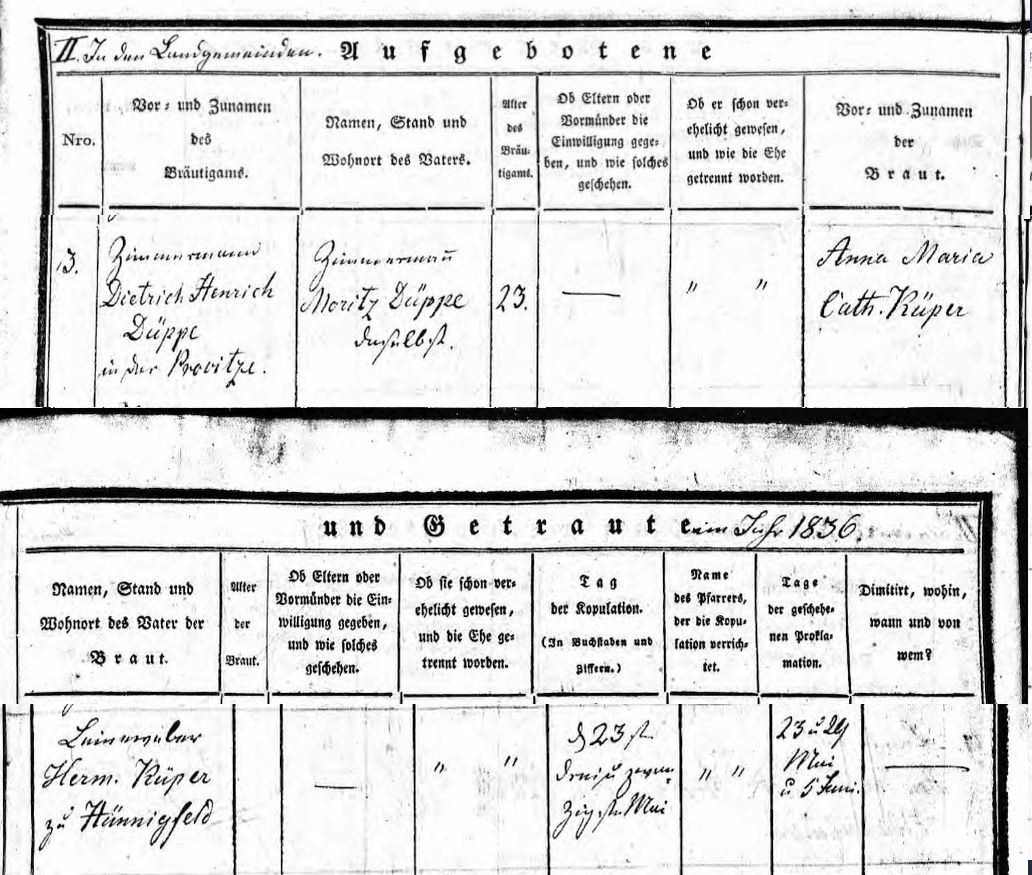 II. In den Landgemeinden. Aufgebotene
Nro.
Vor- und Zunamen
des
Bräutigams.
Namen, Stand und
Wohnort des Vaters.
Alter
des
Bräu-
tigams.
Ob Eltern oder
Vormünder die
Einwilligung gege-
ben, und wie solches
geschehen.
Ob er schon ver-
ehelicht gewesen,
und wie die Ehe
getrennt worden.
Vor- und Zunamen
der
Braut.
3.
Zimmermann
Dietrich Henrich
Düppe
in der
Zimmermann
Moritz Düppe
daselbst.
23.
—
" "
Anna Maria
Cath. Küper
und Getraute im Jahr 1836.
Namen, Stand und
Wohnort des Vater der
Braut.
Alter
der
Braut.
Ob Eltern oder
Vormünder die Ein-
willigung gegeben,
und wie solches
geschehen.
Ob sie schon ver-
ehelicht gewesen,
und die Ehe ge-
trennt worden.
Tag
der Kopulation.
(In Buchstaben und
Ziffern.)
Name
des Pfarrers,
der die Kopu-
lation verrich-
tet.
Tage
der geschehe-
nen Prokla-
mation.
Dimitirt, wohin,
wann und von
wem?
Leineweber
Herm. Küper
zu Hünnigfeld
—
" "
d 23 st
drei u zwan
zigsten Mai
" "
23 u 29
Mai
u 5 Juni.
—